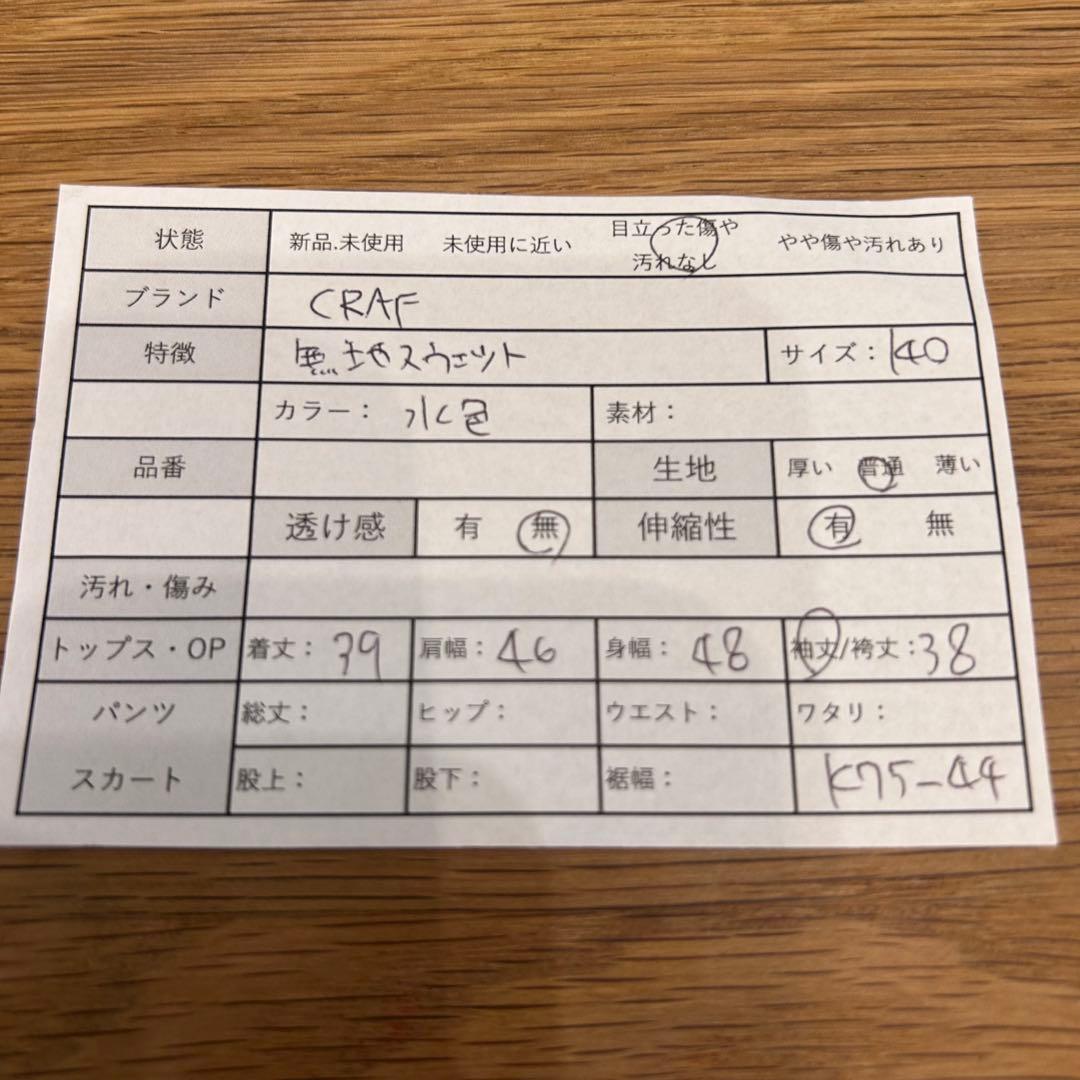 状態 新品.未使用 未使用に近い 目立った傷や汚れなし やや傷や汚れあり
ブランド CRAF
特徴 無地スウェット サイズ: 140
カラー: 水色 素材:
品番 生地 厚い 普通 薄い
透け感 有 無 伸縮性 有 無
汚れ・傷み
トップス・OP 着丈: 39 肩幅: 46 身幅: 48 袖丈/袴丈: 38
パンツ 総丈: ヒップ: ウエスト: ワタリ:
スカート 股上: 股下: 裾幅: K75-44